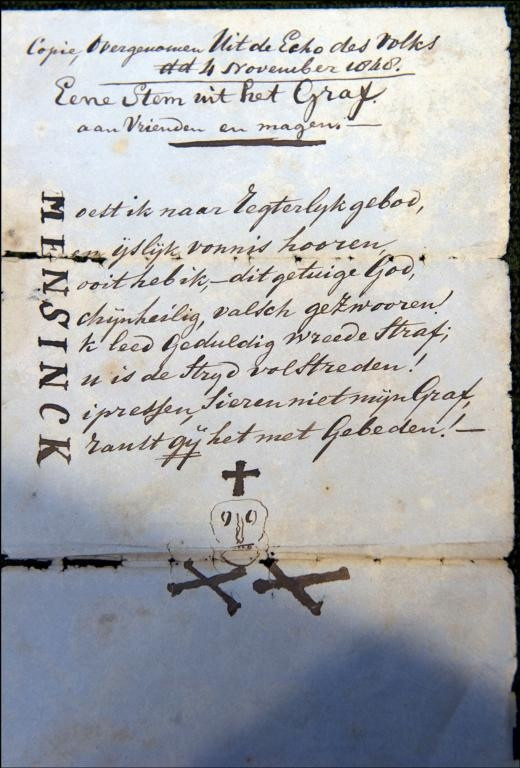 Copie, Overgenomen Uit de Echo des Volks
dd 4 November 1848.
Eene Stem uit het Graf.
aan Vrienden en magen.—
MENSINCK
oest ik naar Regterlyk gebod,
en ijslyk vonnis hooren,
ooit heb ik,—dit getuige God,
chijnheilig, valsch gezwooren!
k leed Geduldig wreede Straf;
u is de Stryd volstreden!
ipressen, Sieren niet mijn Graf,
ranst gij het met Gebeden!—